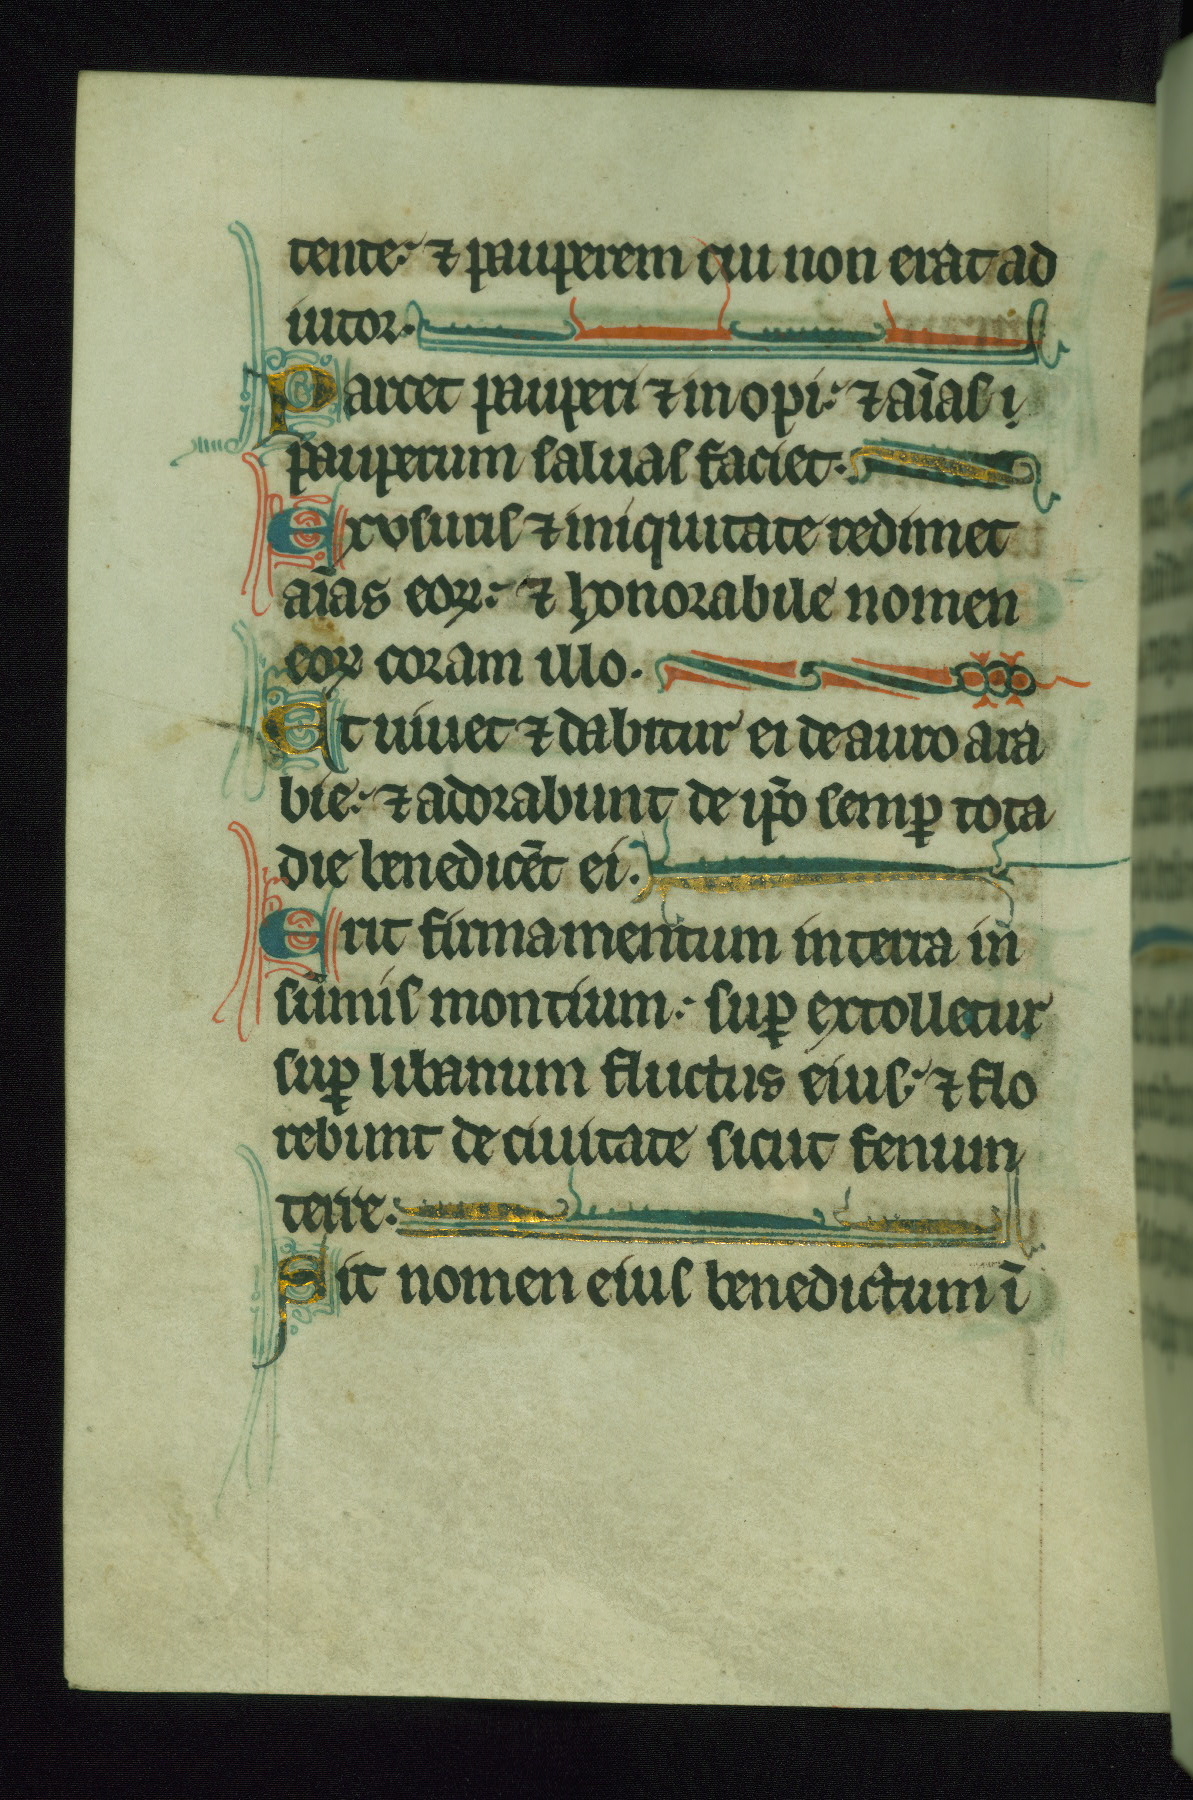 tente: ⁊ pauperem cui non erat ad
iutor.
Parcet pauperi ⁊ inopi: ⁊ aīas
pauperum saluas faciet.
Ex vsuris ⁊ iniquitate redimet
aīas eoꝝ: ⁊ honorabile nomen
eoꝝ coram illo.
Et uiuet ⁊ dabitur ei de auro ara
bie: ⁊ adorabunt de ip̄o semꝑ tota
die benedicēt ei.
Erit firmamentum in terra in
sūmis montium: suꝑ extolletur
suꝑ libanum fluctus eius: ⁊ flo
rebunt de ciuitate sicut fenum
terre.
Sit nomen eius benedictum ī